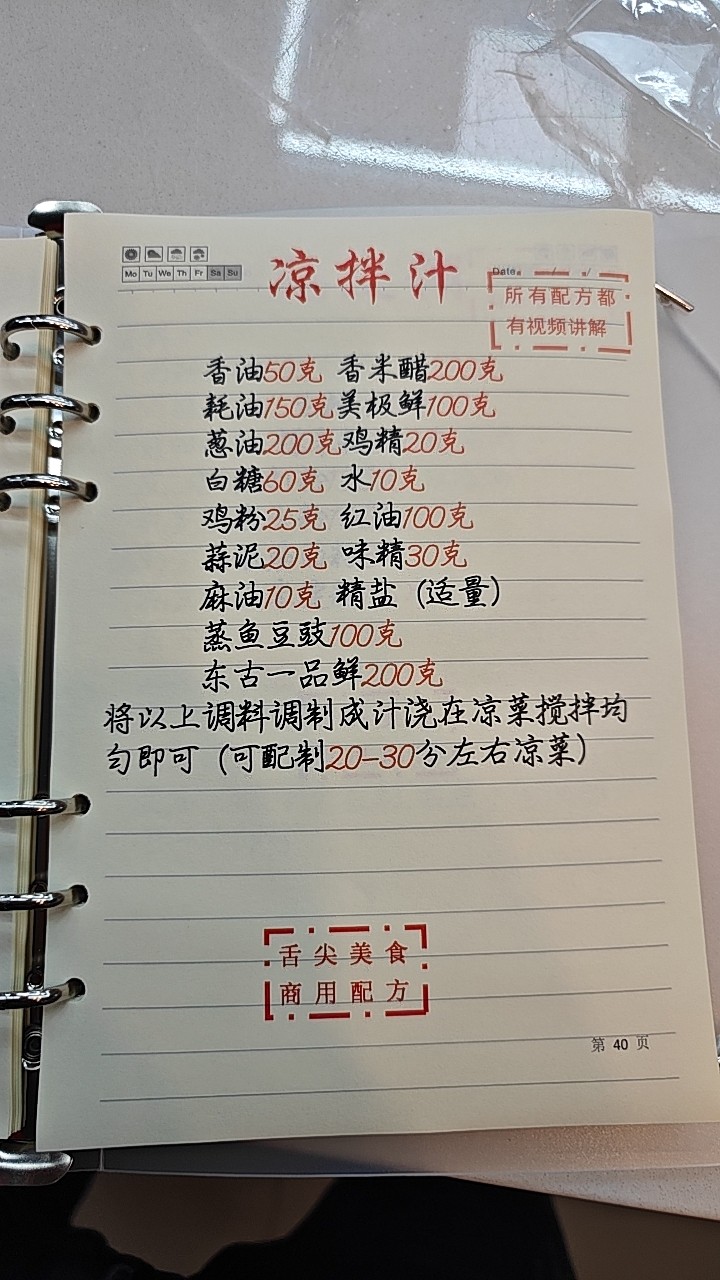 凉拌汁
Mo Tu We Th Fr Sa Su
Date / /
所有配方都
有视频讲解
香油50克 香米醋200克
耗油150克美极鲜100克
葱油200克鸡精20克
白糖60克 水10克
鸡粉25克 红油100克
蒜泥20克 味精30克
麻油10克 精盐（适量）
蒸鱼豆豉100克
东古一品鲜200克
将以上调料调制成汁浇在凉菜搅拌均
匀即可（可配制20-30分左右凉菜）
舌尖美食
商用配方
第 40 页